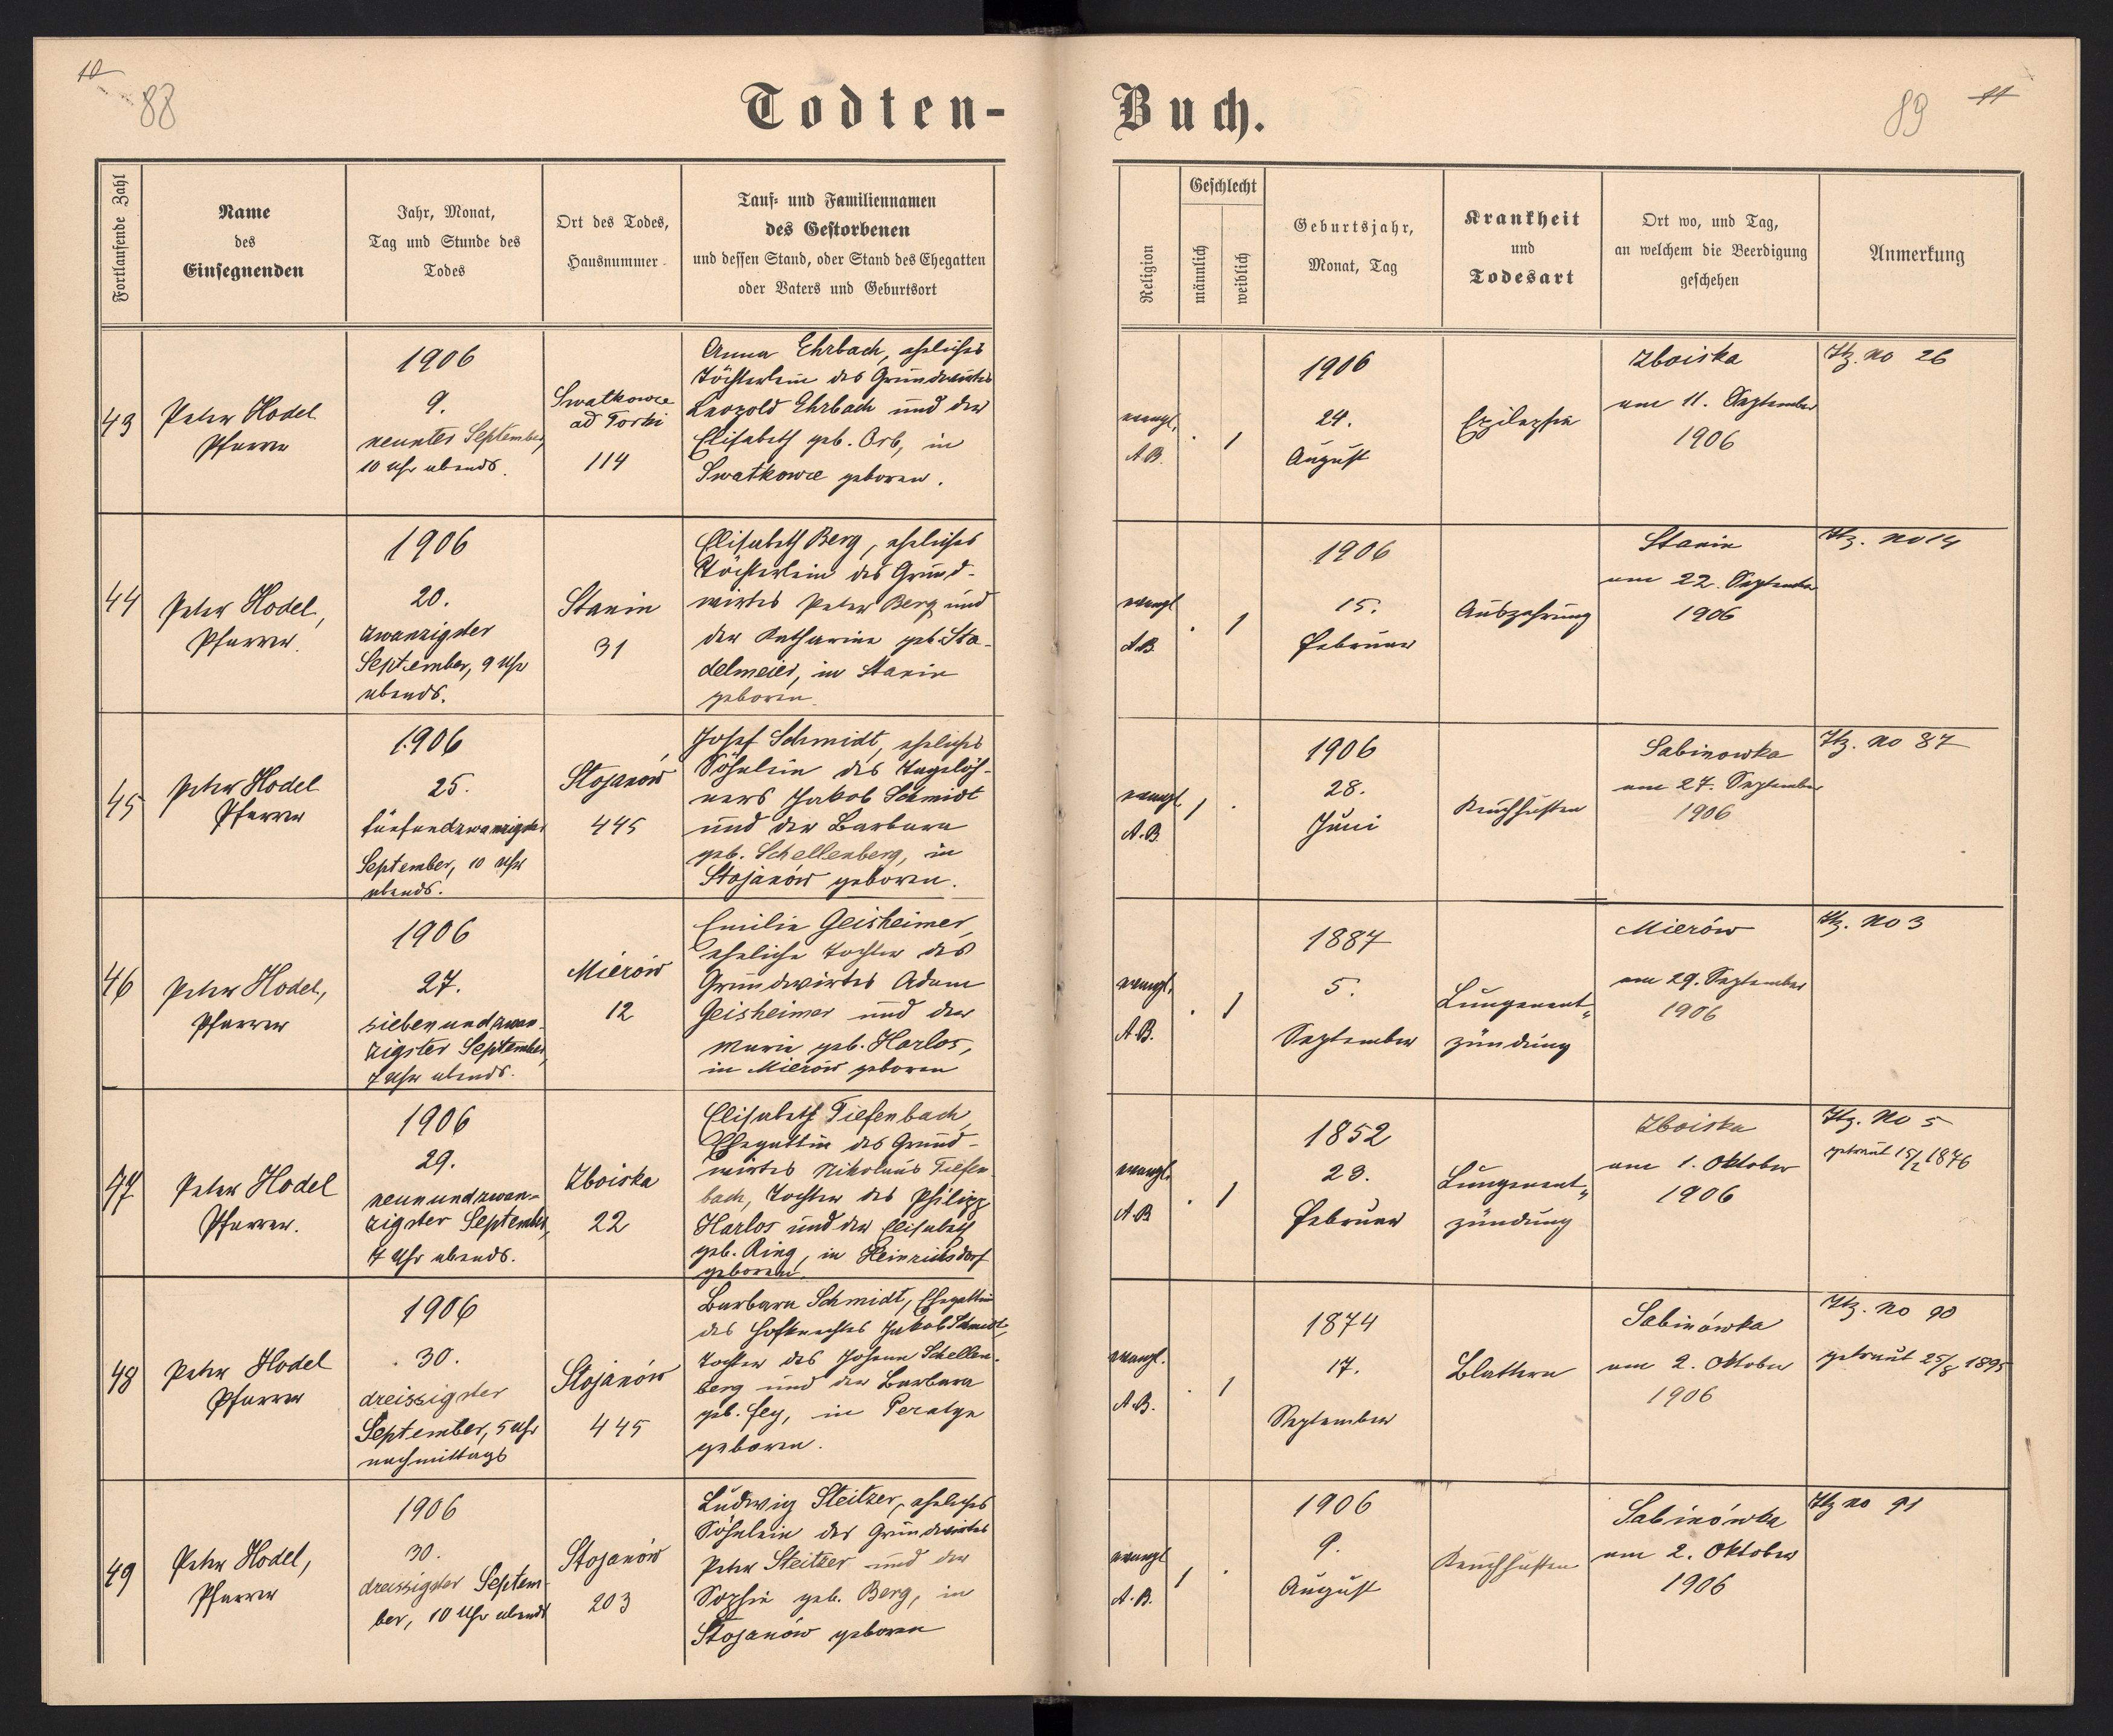 10
88
Todten-
Fortlaufende Zahl
Name
des
Einsegnenden
Jahr, Monat,
Tag und Stunde des
Todes
Ort des Todes,
Hausnummer
Tauf- und Familiennamen
des Gestorbenen
und dessen Stand, oder Stand des Ehegatten
oder Vaters und Geburtsort
43
Peter Hodel
Pfarrer
1906
9.
neunter September,
10 Uhr abends.
Swatkowce
ad Torki
114
Anna Ehrbach, eheliches
Töchterlein des Grundwirtes
Leopold Ehrbach und der
Elisabeth geb. Orb, in
Swatkowce geboren.
44
Peter Hodel,
Pfarrer.
1906
20.
zwanzigster
September, 9 Uhr
abends.
Stanin
31
Elisabeth Berg, eheliches
Töchterlein des Grund-
wirtes Peter Berg und
der Katharina geb. Sta-
delmeier, in Stanin
geboren.
45
Peter Hodel
Pfarrer
1906
25.
fünfundzwanzigster
September, 10 Uhr
abends.
Stojanów
445
Josef Schmidt, eheliches
Söhnlein des Tagelöh-
ners Jakob Schmidt
und der Barbara
geb. Schellenberg, in
Stojanów geboren.
46
Peter Hodel,
Pfarrer
1906
27.
siebenundzwan-
zigster September,
7 Uhr abends.
Mierów
12
Emilie Geisheimer,
eheliche Tochter des
Grundwirtes Adam
Geisheimer und der
Marie geb. Harlos,
in Mierów geboren
47
Peter Hodel
Pfarrer.
1906
29.
neunundzwan-
zigster September,
7 Uhr abends.
Zboiska
22
Elisabeth Tiefenbach,
Ehegattin des Grund-
wirtes Nikolaus Tiefen-
bach, Tochter des Philipp
Harlos und der Elisabeth
geb. Ring, in Heinrichsdorf
geboren.
48
Peter Hodel
Pfarrer
1906
30.
dreissigster
September, 5 Uhr
nachmittags
Stojanów
445
Barbara Schmidt, Ehegattin
des Hofknechtes Jakob Schmidt,
Tochter des Johann Schellen-
berg und der Barbara
geb. Fey, in
geboren.
49
Peter Hodel,
Pfarrer
1906
30.
dreissigster Septem-
ber, 10 Uhr abends
Stojanów
203
Ludwig Steitzer, eheliches
Söhnlein des Grundwirtes
Peter Steitzer und der
Sophie geb. Berg, in
Stojanów geboren
Buch.
89
11
Religion
Geschlecht
männlich
weiblich
Geburtsjahr,
Monat, Tag
Krankheit
und
Todesart
Ort wo, und Tag,
an welchem die Beerdigung
geschehen
Anmerkung
evangl.
A.B.
. 1
1906
24.
August
Epilepsie
Zboiska
am 11. September
1906
Itz. no 26
evangl
A.B.
. 1
1906
15.
Februar
Auszehrung
Stanin
am 22. September
1906
Itz. no 14
evangl.
A.B.
1 .
1906
28.
Juni
Keuchhusten
Sabinowka
am 27. September
1906
Itz. no 87
evangl.
A.B.
. 1
1887
5.
September
Lungenent-
zündung
Mierów
am 29. September
1906
Itz. No 3
evangl.
A.B
. 1
1852
23.
Februar
Lungenent-
zündung
Zboiska
am 1. Oktober
1906
Itz. No 5
getraut 15/2 1876
evangl.
A.B.
. 1
1874
17.
September
Blattern
Sabinówka
am 2. Oktober
1906
Itz. no 90
getraut 25/8 1895
evangl
A.B.
1 .
1906
9.
August
Keuchhusten
Sabinówka
am 2. Oktober
1906
Itz no 91